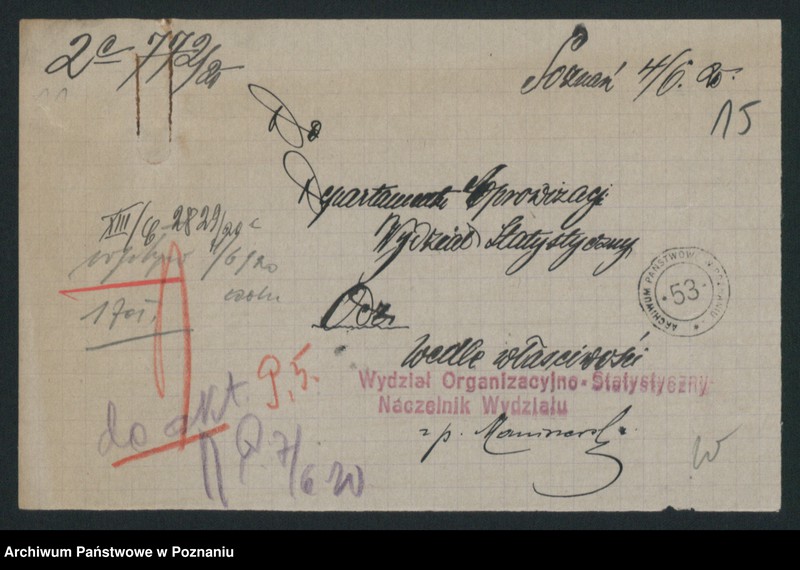 2c 772/20
Poznań 4/6. 20.
15
Do
Departamentu Aprowizacji
Wydział Statystyczny
XIII/C 2829/20 c
1/6/20
17 VI.
ARCHIWUM PAŃSTWOWE W POZNANIU
53
wedle właściwości
Wydział Organizacyjno-Statystyczny
Naczelnik Wydziału
z p.
P. 5.
do akt.
P. 7/6 20
w
Archiwum Państwowe w Poznaniu